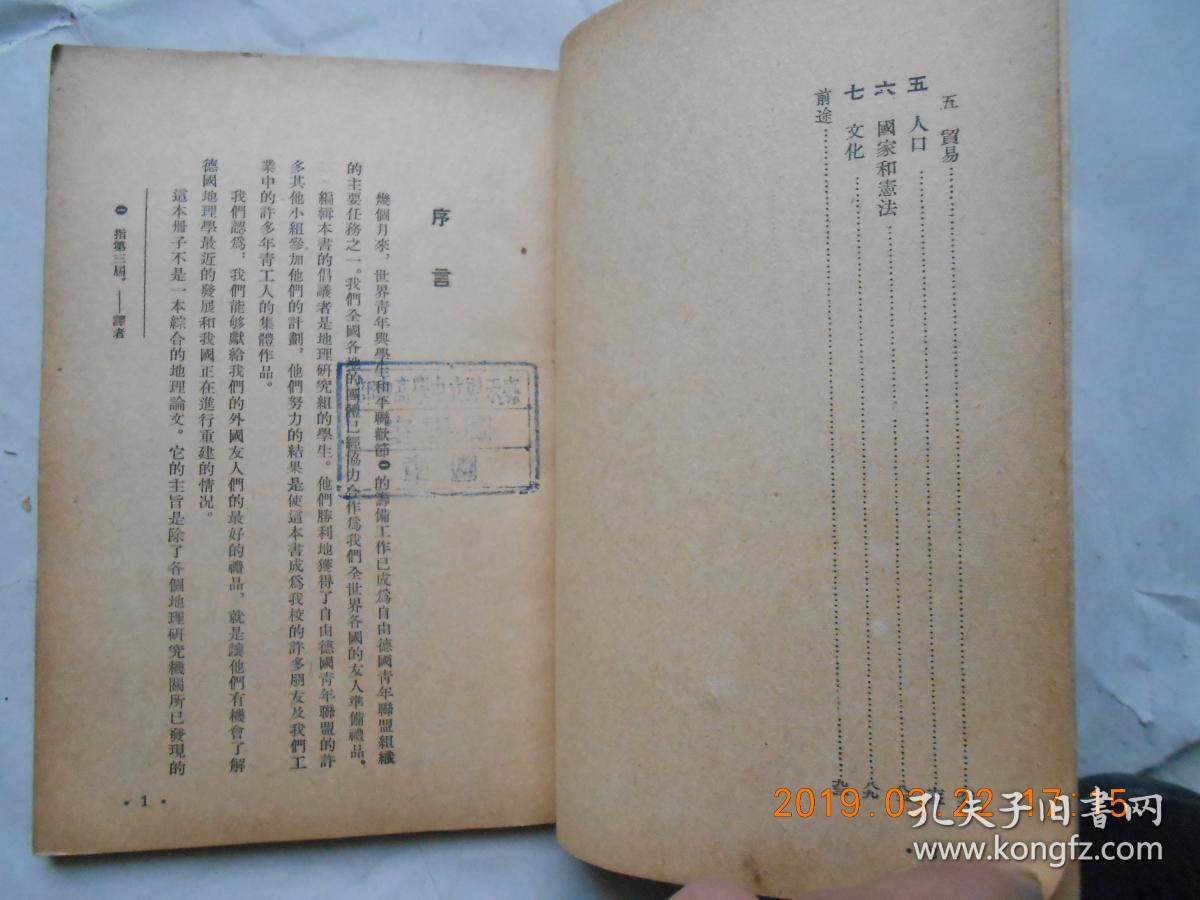 五 貿易
五 人口
六 國家和憲法
七 文化 八九
前途
序言
幾個月來，世界青年與學生和平聯歡節㊀的籌備工作已成爲自由德國青年聯盟組織
的主要任務之一。我們全國各地的團體已經協力合作爲我們全世界各國的友人準備禮品。
編輯本書的倡議者是地理研究組的學生。他們勝利地獲得了自由德國青年聯盟的許
多其他小組參加他們的計劃，他們努力的結果是使這本書成爲我校的許多朋友及我們工
業中的許多年青工人的集體作品。
我們認爲，我們能够獻給我們的外國友人們的最好的禮品，就是讓他們有機會了解
德國地理學最近的發展和我國正在進行重建的情况。
這本册子不是一本綜合的地理論文。它的主旨是除了各個地理研究機關所已發現的
㊀ 指第三屆。——譯者
· 1 ·
2019.03.22 17:15
孔夫子旧书网
www.kongfz.com